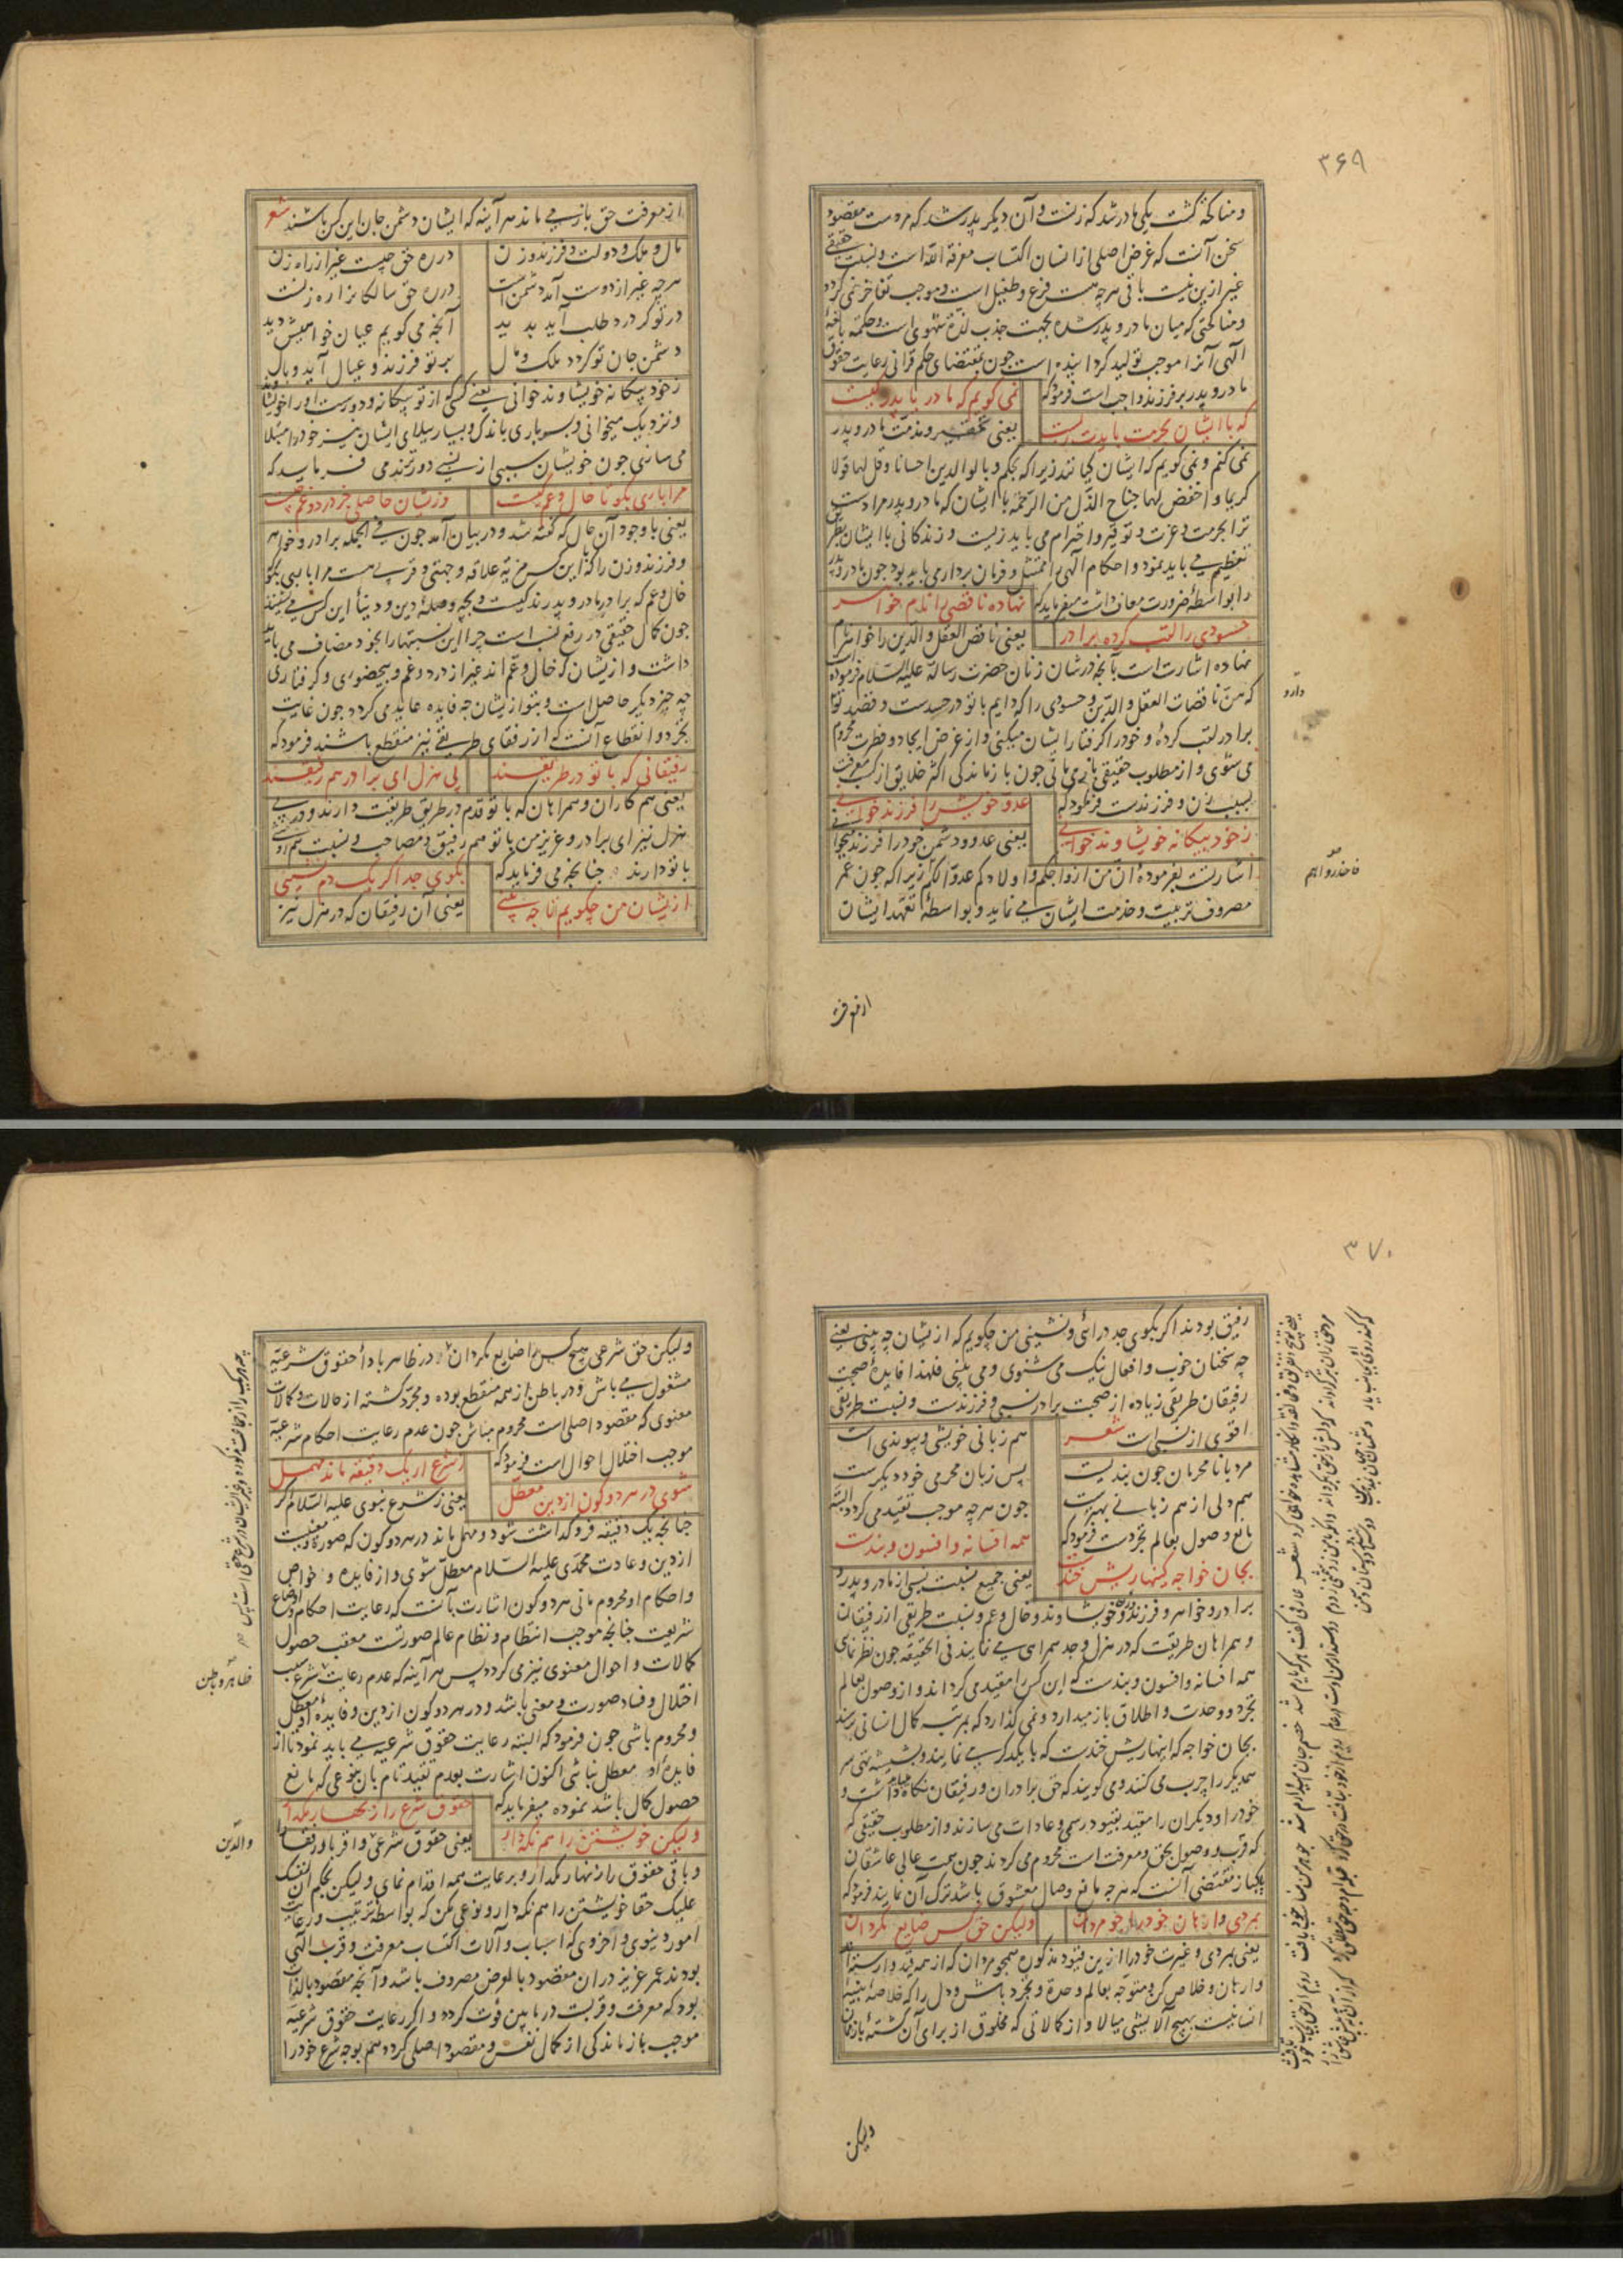 ۳۶۹
ومناکحه گشت یکی مادر شد که زنست و آن دیگر پدر شد که مردست مقصود
سخن آنست که غرض اصلی از انسان اکتساب معرفة الله است ونسبت حقیقی
غیر ازین نیست باقی هرچه هست فرع و طفیل است و موجب تفاخر نمی گردد
ومناکحتی که میان مادر و پدر شده بجهت جذب لذة شهوی است و حکمة بالغهٔ
الهی آنرا موجب تولید گردانیده است چون بمقتضای حکم قرانی رعایت حقوق
مادر و پدر بر فرزند واجب است فرمود که
نمی گویم که مادر یا پدر کیست
که با ایشان بحرمت بایدت زیست
یعنی تحقیر و مذمت مادر و پدر
نمی کنم و نمی گویم که ایشان کیانند زیرا که بحکم وبالوالدین احسانا وقل لهما قولا
کریما واخفض لهما جناح الذل من الرحمة با ایشان که مادر و پدر مرادست
ترا بحرمت وعزت و توقیر و احترام می باید زیست و زندگانی با ایشان بنظر
تعظیم می باید نمود و احکام الهی را ممتثل و فرمان بردار می باید بود چون مادر و پدر
را بواسطهٔ ضرورت معاف داشت میفرماید که
نهاده ناقصی را نام خواهر
حسودی را لقب کرده برادر
یعنی ناقص العقل والدین را خواهر نام
نهاده اشارت است بآنچه در شان زنان حضرت رسالة علیه السلام فرموده
که هن ناقصات العقل والدین و حسودی را که دایم با تو در حسدست و قصد تو
برادر لقب کردهٔ و خود را گرفتار ایشان میکنی و از غرض ایجاد و فطرت محروم
می شوی و از مطلوب حقیقی باز می مانی چون بازماندگی اکثر خلایق از کسب معرفت
بسبب زن و فرزندست فرمود که
عدو خویش را فرزند خوانی
ز خود بیگانه خویشاوند خوانی
یعنی عدو و دشمن خود را فرزند میخوانی
اشارتست بفرمودهٔ ان من ازواجکم واولادکم عدوا لکم زیرا که چون عمر
مصروف تربیت و خدمت ایشان می نماید و بواسطهٔ تعهد ایشان
دارد
فاحذروا هم
از معرفت
از معرفت حق باز می ماند هر آینه که ایشان دشمن جان این کس باشند شعر
مال و ملک و دولت و فرزند و زن
در ره حق چیست غیر از راه زن
هرچه غیر از دوست آمد دشمن است
در ره حق سالکانرا ره زنست
در تو گر درد طلب آید پدید
آنچه می گویم عیان خواهیش دید
دشمن جان تو گردد ملک و مال
بر تو فرزند و عیال آید وبال
ز خود بیگانه خویشاوند خوانی یعنی کسی از تو بیگانه و دورست او را خویشاوند
ونزدیک میخوانی
می سازی چون خویشان سببی از نسبی دورترند می فرماید که
مرا باری بگو تا خال و عم کیست
وزیشان حاصلی جز درد و غم چیست
یعنی با وجود آن حال که گفته شد و در بیان آمد چون فی الجمله برادر و خواهر
و فرزند و زن را که با این کس مزید علاقه و جهتی و قربی هست مرا باری بگو
خال و عم که برادر مادر و پدرند کیست و بچه وصلهٔ دین و دنیا این کس می بینند
چون کمال حقیقی در رفع نسب است چرا این نسبتها را بخود مضاف می باید
داشت و از ایشان که خال و عم اند غیر از درد و غم و بیحضوری و گرفتاری
چه چیز دیگر حاصل است و بتو از ایشان چه فایده عاید می گردد چون غایت
تجرد و انقطاع آنست که از رفقای طریقی نیز منقطع باشند فرمود که
رفیقانی که با تو در طریقند
پی هزل ای برادر هم رفیقند
یعنی هم کاران و همراهان که با تو قدم در طریق طریقت دارند و در پی
هزل نیز ای برادر و عزیز من با تو هم رفیق و مصاحب
با تو دارند چنانچه می فرماید که
بکوی جد اگر یک دم نشینی
ازیشان من چگویم تا چه بینی
یعنی آن رفیقان که در هزل نیز
۳۷۰
رفیق بودند اگر بکوی جد درائی و نشینی من چگویم که ازیشان چه بینی یعنی
چه سخنان خوب و افعال نیک می شنوی و می بینی فلهذا فایدهٔ صحبت
رفیقان طریقی زیاده از صحبت برادر نسبی و فرزندست و نسبت طریقی
اقوی از نسبی است شعر
هم زبانی خویشی و پیوندی است
مرد با نامحرمان چون بندیست
پس زبان محرمی خود دیگرست
هم دلی از هم زبانی بهترست
چون هرچه موجب تقید می گردد البته
مانع وصول بعالم تجردست فرمود که
همه افسانه و افسون و بندست
بجان خواجه کینها ریش خندست
یعنی جمیع نسبت نسبی از مادر و پدر و
برادر و خواهر و فرزند و خویشاوند و خال و عم و نسبت طریقی از رفیقان
و همراهان طریقت که در هزل و جد همراهی می نمایند فی الحقیقه چون نظر نمای
همه افسانه و افسون و بندست که این کس را مقید می گرداند و از وصول بعالم
تجرد و وحدت و اطلاق باز میدارد و نمی گذارد که بمرتبه کمال انسانی رسد
بجان خواجه که اینها ریش خندست که با یکدگر می نمایند
همدیگر را چرب می کنند و می گویند که حق برادران و رفیقان نگاه می باید داشت و
خود را و دیگران را مقید بقیود رسمی و عادات می سازند و از مطلوب حقیقی
که قرب و وصول بحق و معرفت است محروم می گردند چون همت عالی عاشقان
پاکباز مقتضی آنست که هرچه مانع وصال معشوق باشد ترک آن نمایند فرمود که
بمردی وارهان خود را چو مردان
ولیکن حق کس ضایع مگردان
یعنی بمردی و غیرت خود را ازین قیود مذکوره همچو مردان که از همه قید وارسته اند
وارهان و خلاص کن و متوجه بعالم وحدة و تجرد باش و دل را که خلاصهٔ بنیهٔ
انسانیست بهیچ آلایشی میالا و از کمالاتی که مخلوق از برای آن گشتهٔ بازممان
ولیکن
ولیکن حق شرعی هیچ کس را ضایع مگردان و در ظاهر بادأ حقوق شرعیه
مشغول می باش و در باطن از همه منقطع بوده و مجرد گشته از حالات و کمالات
معنوی که مقصود اصلی است محروم مباش چون عدم رعایت احکام شرعیه
موجب اختلال احوال است فرمود که
ز شرع ار یک دقیقه ماند مهمل
شوی در هر دو کون از دین معطل
یعنی ز شرع نبوی علیه السلام اگر
چنانچه یک دقیقه فروگذاشت شود و مهمل ماند در هر دو کون که صورة و معنیست
از دین و عادت محمدی علیه السلام معطل شوی و از فایده و خواص
و احکام او محروم مانی هر دو کون اشارت بآنست که رعایت احکام و اوضاع
شریعت چنانچه موجب انتظام و نظام عالم صورتست معقب حصول
کمالات و احوال معنوی نیز می گردد پس هر آینه که عدم رعایت شرع سبب
اختلال و فساد صورت و معنی باشد و در هر دو کون از دین و فایدهٔ او معطل
و محروم باشی چون فرمود که البته رعایت حقوق شرعیه می باید نمود تا از
فایدهٔ او معطل نباشی اکنون اشارت بعدم تقید تام بآن بنوعی که مانع
حصول کمال باشد نموده میفرماید که
حقوق شرع را زنهار مگذار
ولیکن خویشتن را هم نگه دار
یعنی حقوق شرعی و اقربا و رفقا
و باقی حقوق را زنهار مگذار و برعایت همه اقدام نمای ولیکن بحکم ان لنفسک
علیک حقا خویشتن را هم نگه دار و نوعی مکن که بواسطهٔ ترتیب و رعایت
امور دنیوی و اخروی که اسباب و آلات اکتساب معرفت و قرب الهی
بودند عمر عزیز در آن مقصود بالعرض مصروف باشد و آنچه مقصود بالذات
بود که معرفت و قربت در مابین فوت گردد و اگر رعایت حقوق شرعیه
موجب بازماندگی از کمال نفس و مقصود اصلی گردد هم بوجه شرع خود را
ظاهر و باطن
والدین